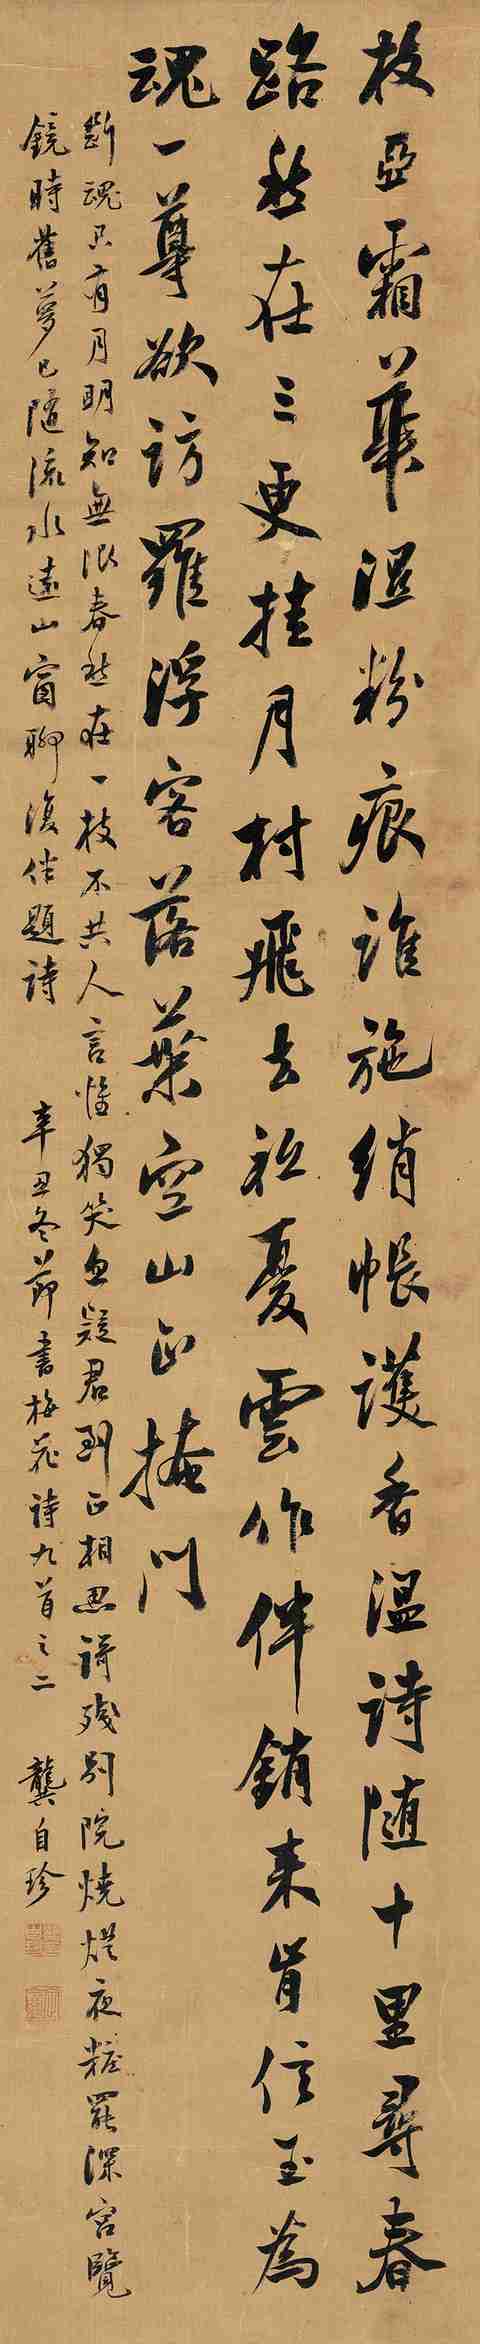 枝亞霜華溼粉痕誰施綃帳護香溫詩随十里尋春
路愁在三更挂月村飛去祗憂雲作伴銷来肯信玉為
魂一尊欲訪羅浮客落葉空山正掩門
斷魂只有月明知無限春愁在一枝不共人言惟獨笑忽疑君到正相思謌殘別院燒燈夜粧罷深宮覽
鏡時舊夢已隨流水遠山窗聊復伴題詩 辛丑冬節書梅花詩九首之二 龔自珍